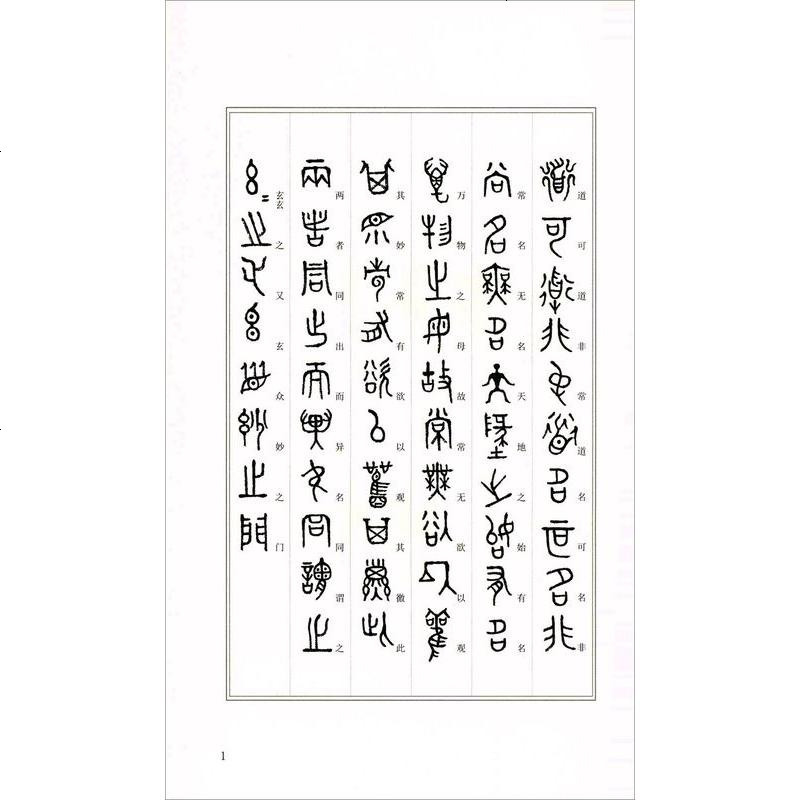 道可道非常道名可名非
常名无名天地之始有名
万物之母故常无欲以观
其妙常有欲以观其徼此
两者同出而异名同谓之
玄玄之又玄众妙之门
1